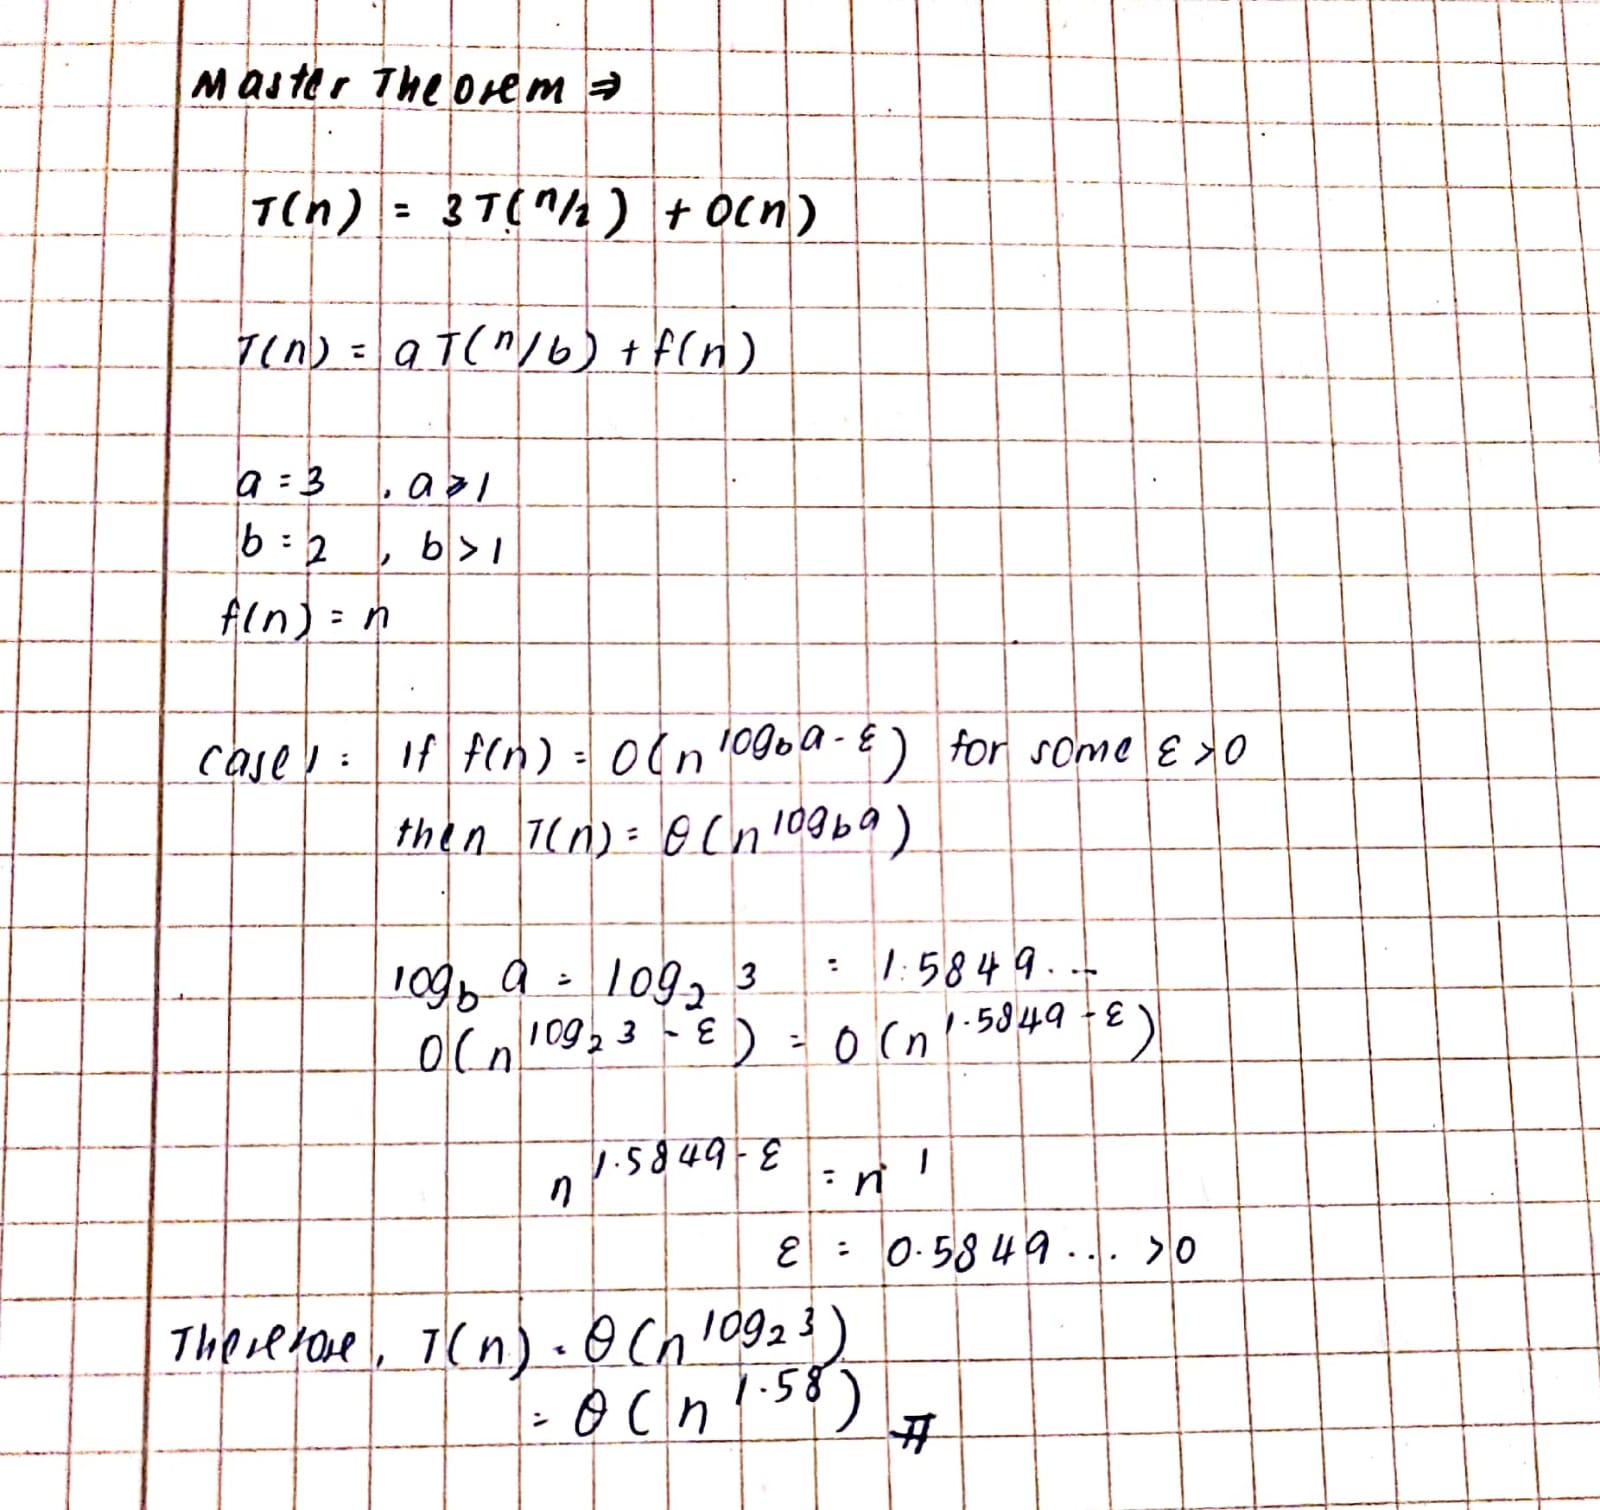 Master Theorem ⇒
T(n) = 3T(n/2) + O(n)
T(n) = aT(n/b) + f(n)
a = 3 , a ≥ 1
b = 2 , b > 1
f(n) = n
case 1 : If f(n) = O(n^log_b a - ε) for some ε > 0
then T(n) = θ(n^log_b a)
log_b a = log_2 3 = 1.5849...
O(n^log_2 3 - ε) = O(n^1.5849 - ε)
n^1.5849 - ε = n^1
ε = 0.5849... > 0
Therefore, T(n) = θ(n^log_2 3)
= θ(n^1.58) #